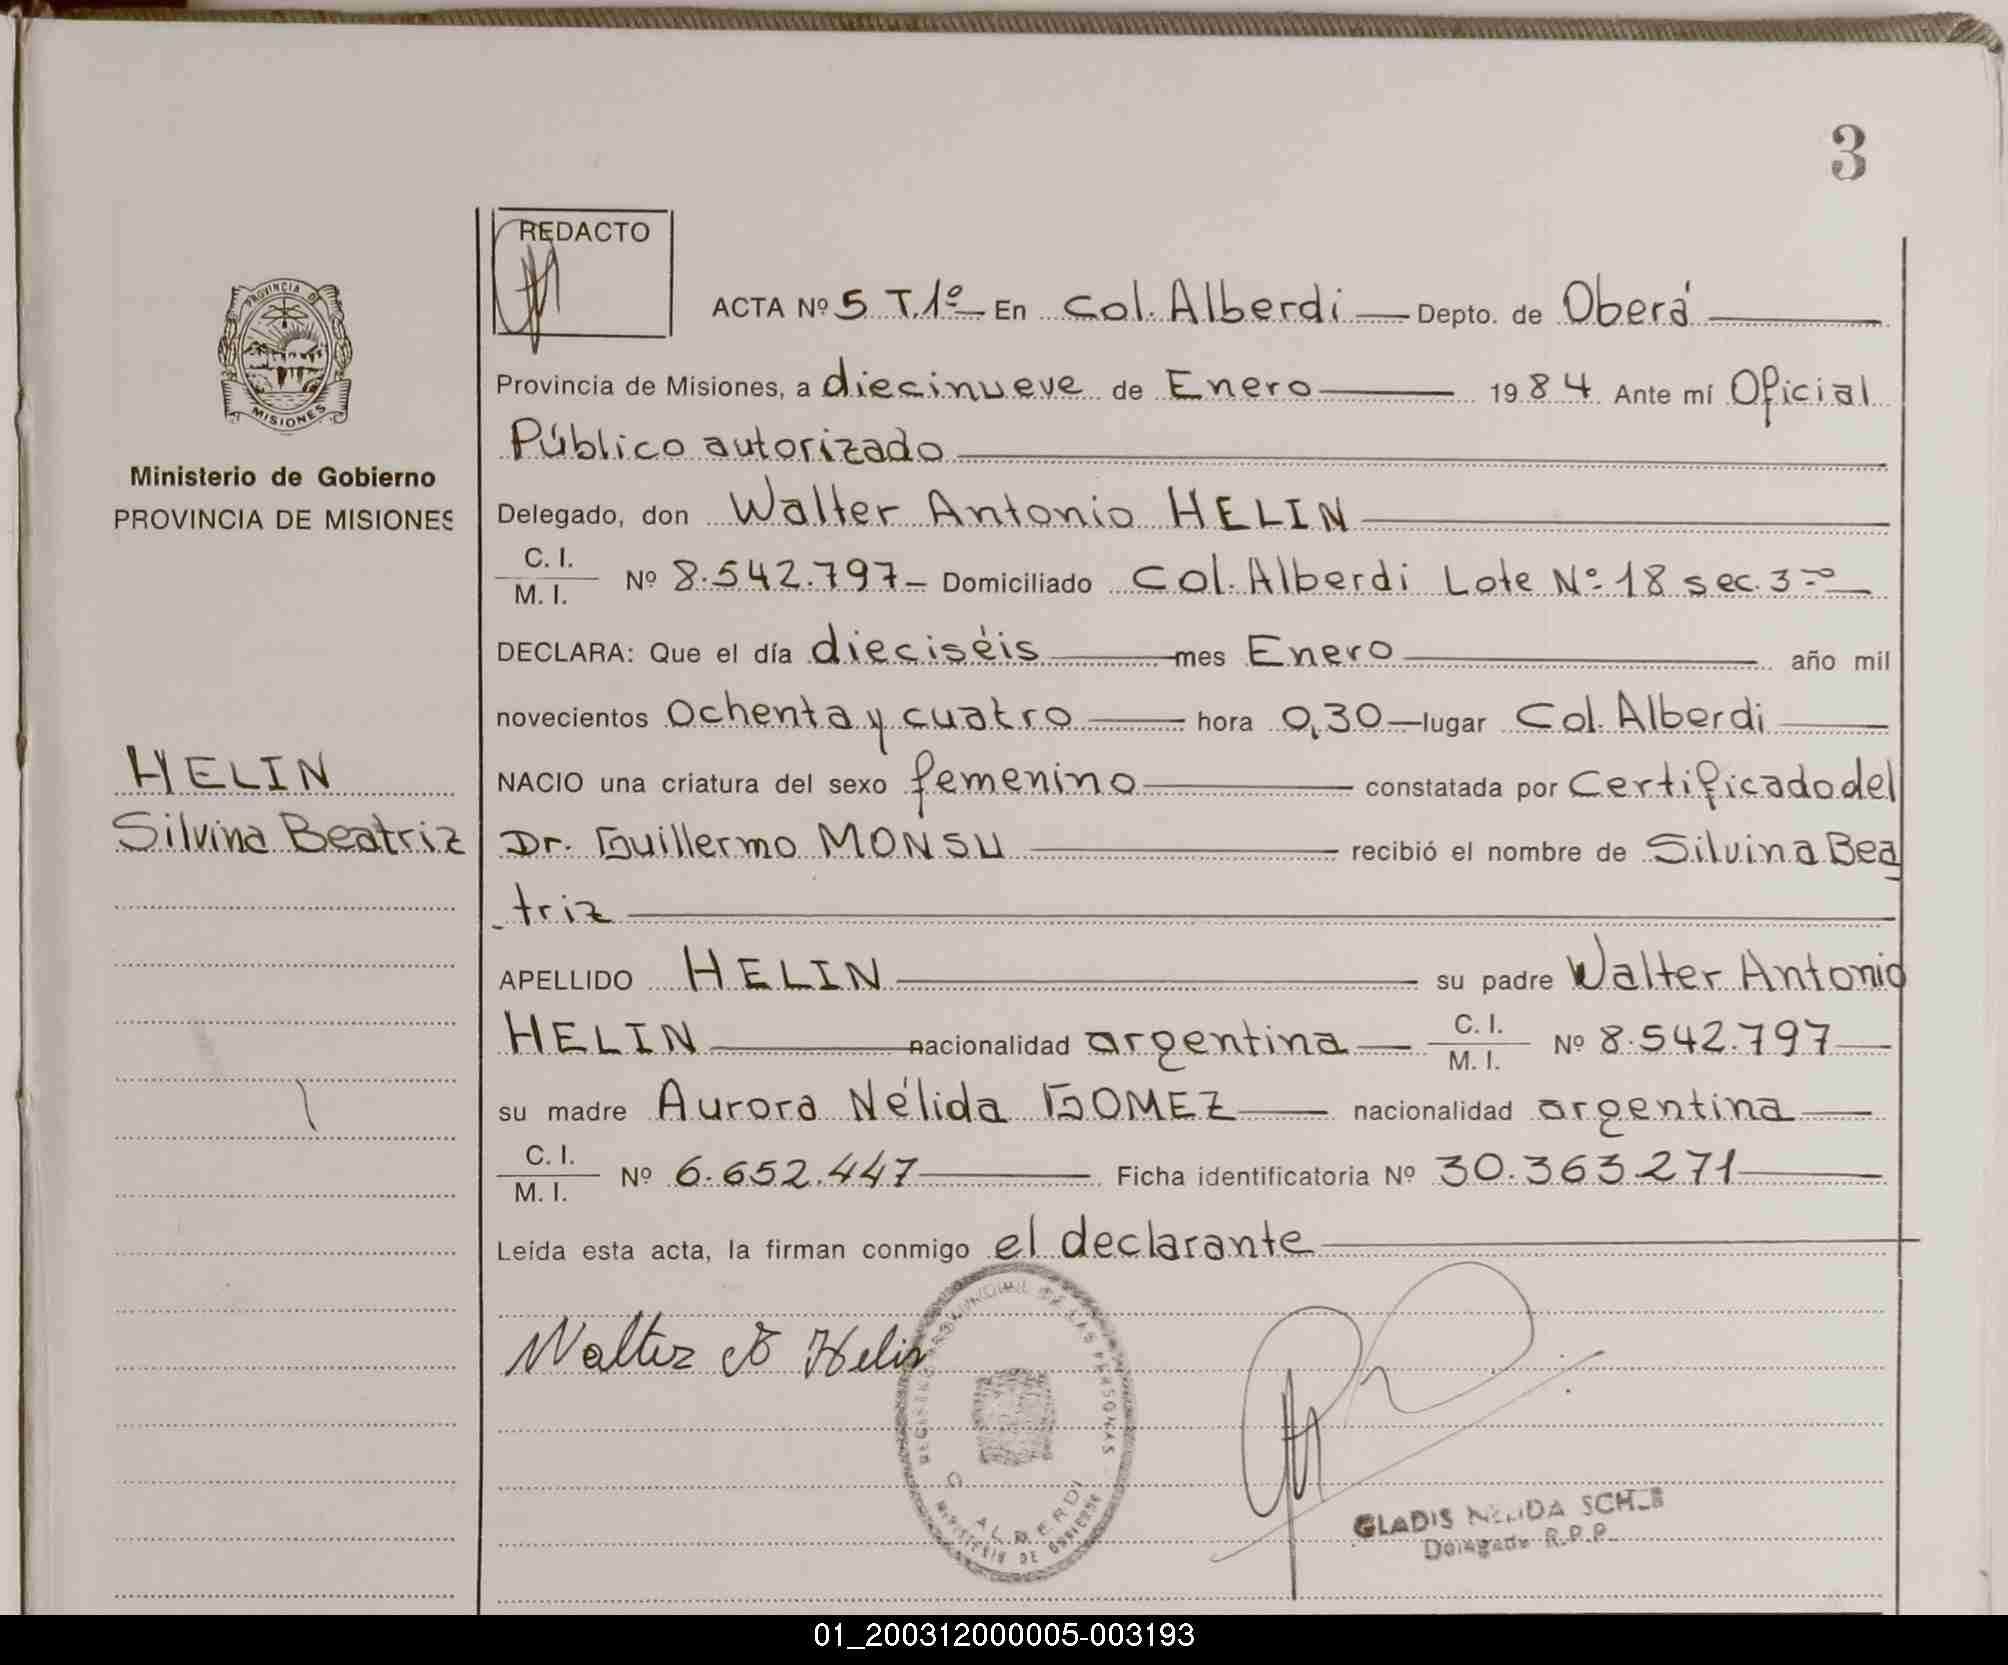 3
REDACTO
ACTA Nº 5 T.1º En Col. Alberdi Depto. de Oberá
PROVINCIA DE
MISIONES
Provincia de Misiones, a diecinueve de Enero 1984 Ante mí Oficial
Público autorizado
Ministerio de Gobierno
PROVINCIA DE MISIONES
Delegado, don Walter Antonio HELIN
C. I.
M. I. Nº 8.542.797 Domiciliado Col. Alberdi Lote Nº 18 sec. 3ª
DECLARA: Que el día dieciséis mes Enero año mil
novecientos Ochenta y cuatro hora 0,30 lugar Col. Alberdi
HELIN
Silvina Beatriz
NACIO una criatura del sexo femenino constatada por Certificado del
Dr. Guillermo MONSU recibió el nombre de Silvina Bea
triz
APELLIDO HELIN su padre Walter Antonio
HELIN nacionalidad argentina C. I. M. I. Nº 8.542.797
su madre Aurora Nélida GOMEZ nacionalidad argentina
C. I.
M. I. Nº 6.652.447 Ficha identificatoria Nº 30.363.271
Leída esta acta, la firman conmigo el declarante
Walter A Helin
REGISTRO PROVINCIAL DE LAS PERSONAS
C. ALBERDI
MINISTERIO DE GOBIERNO
GLADIS NELIDA
Delegado R.P.P.
01_200312000005-003193